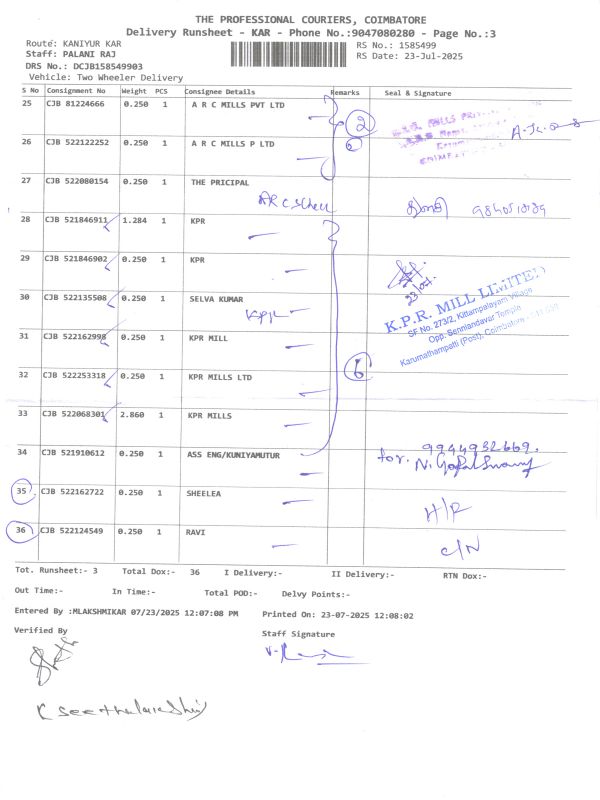 THE PROFESSIONAL COURIERS, COIMBATORE
Delivery Runsheet - KAR - Phone No.:9047080280 - Page No.:3
Route: KANIYUR KAR
RS No.: 1585499
Staff: PALANI RAJ
RS Date: 23-Jul-2025
DRS No.: DCJB158549903
Vehicle: Two Wheeler Delivery
S No Consignment No Weight PCS Consignee Details Remarks Seal & Signature
25 CJB 81224666 0.250 1 A R C MILLS PVT LTD
2
26 CJB 522122252 0.250 1 A R C MILLS P LTD
27 CJB 522080154 0.250 1 THE PRICIPAL
28 CJB 521846911 1.284 1 KPR
29 CJB 521846902 0.250 1 KPR
30 CJB 522135508 0.250 1 SELVA KUMAR
K.P.R. MILL LIMITED
SF No. 273/2, Kittampalayam Village
Opp. Senniandavar Temple
Karumathampatti (Post), Coimbatore
31 CJB 522162998 0.250 1 KPR MILL
32 CJB 522253318 0.250 1 KPR MILLS LTD
6
33 CJB 522068301 2.860 1 KPR MILLS
34 CJB 521910612 0.250 1 ASS ENG/KUNIYAMUTUR
9944932669.
for. N. Gopalswamy
35 CJB 522162722 0.250 1 SHEELEA
H/R
36 CJB 522124549 0.250 1 RAVI
C/N
Tot. Runsheet:- 3 Total Dox:- 36 I Delivery:- II Delivery:- RTN Dox:-
Out Time:- In Time:- Total POD:- Delvy Points:-
Entered By :MLAKSHMIKAR 07/23/2025 12:07:08 PM Printed On: 23-07-2025 12:08:02
Verified By
Staff Signature